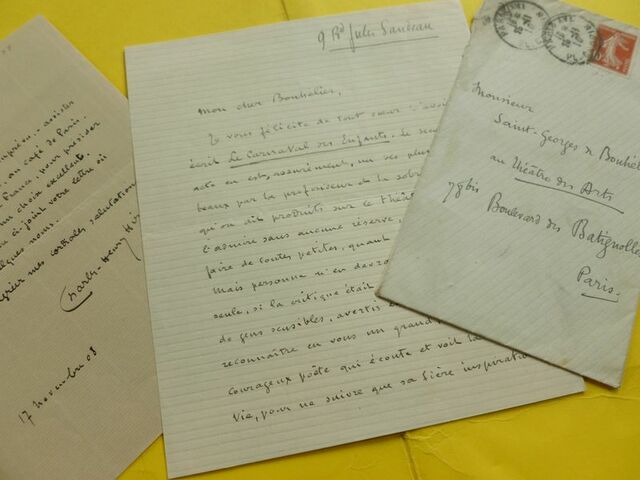 assister
au café de Paris.
France, pour présider
un choix excellent.
ci-joint votre lettre où
quelques noms.
mes cordiales salutations
Charles-Henry
17 novembre 08
9 Bd Jules Sandeau
Mon cher Bouhélier,
Je vous félicite de tout cœur d'avoir
écrit Le Carnaval des Enfants. Le
acte en est, assurément, un des plus
beaux par la profondeur de la
qu'on ait produits sur le
J'admire sans aucune réserve,
faire de toutes petites, quant
Mais personne n'en
seule, si la critique était
de gens sensibles, avertis
reconnaître en vous un grand
courageux poète qui écoute et voit la
vie, pour ne suivre que sa fière inspiration
Monsieur
Saint-Georges de Bouhélier
au Théâtre des Arts
78 bis Boulevard des Batignolles
Paris.